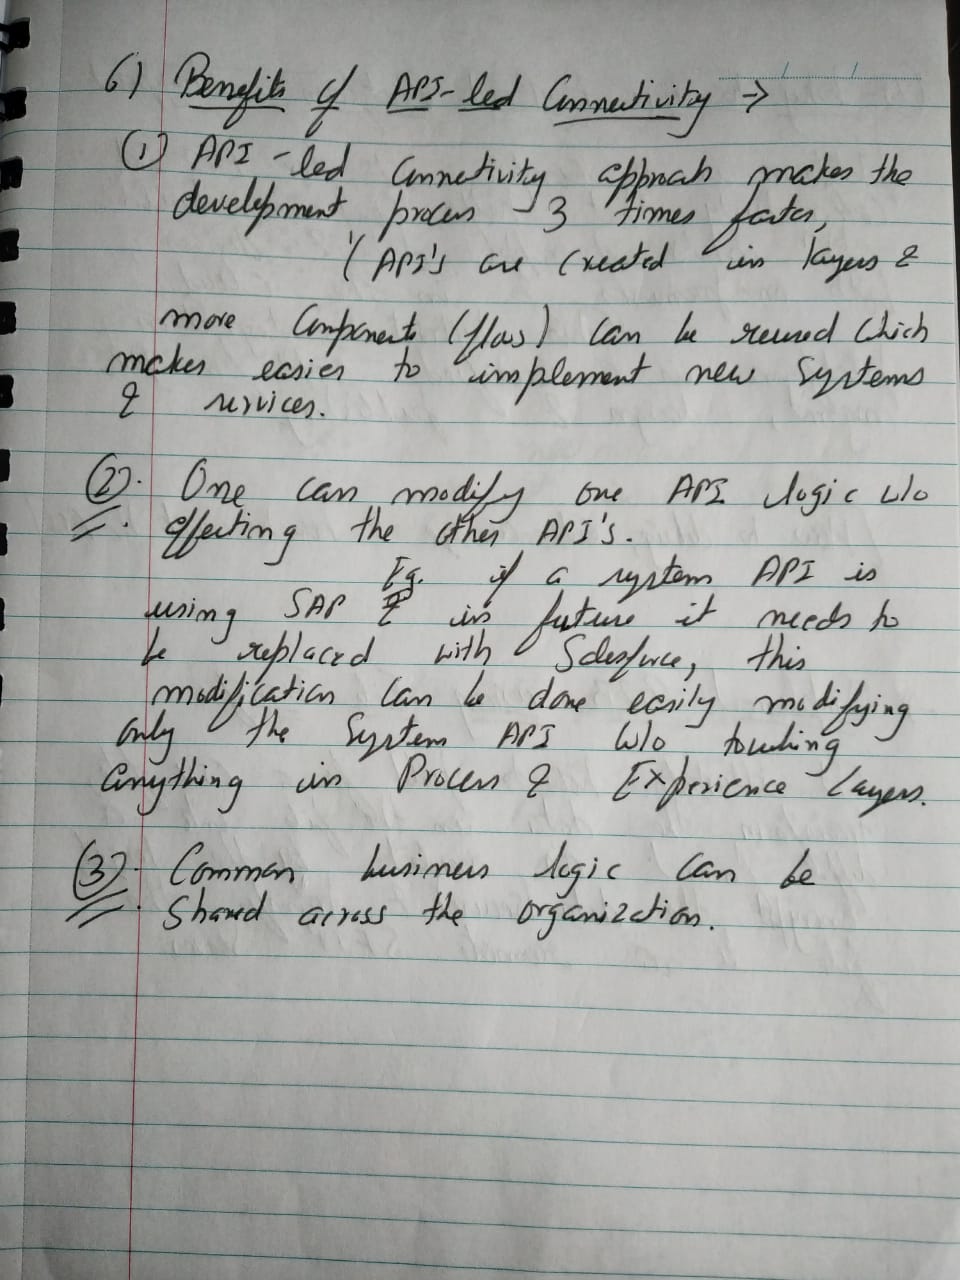 6) Benefits of API-led Connectivity →
① API-led Connectivity approach makes the
development process 3 times faster,
( API's are created in layers &
more Components (flows) can be reused which
makes easier to implement new systems
& services.
②. One can modify one API logic w/o
effecting the other API's.
Eg. if a system API is
using SAP & in future it needs to
be replaced with Salesforce, this
modification can be done easily modifying
only the System API w/o touching
anything in Process & Experience Layers.
③. Common business logic can be
Shared across the organization.